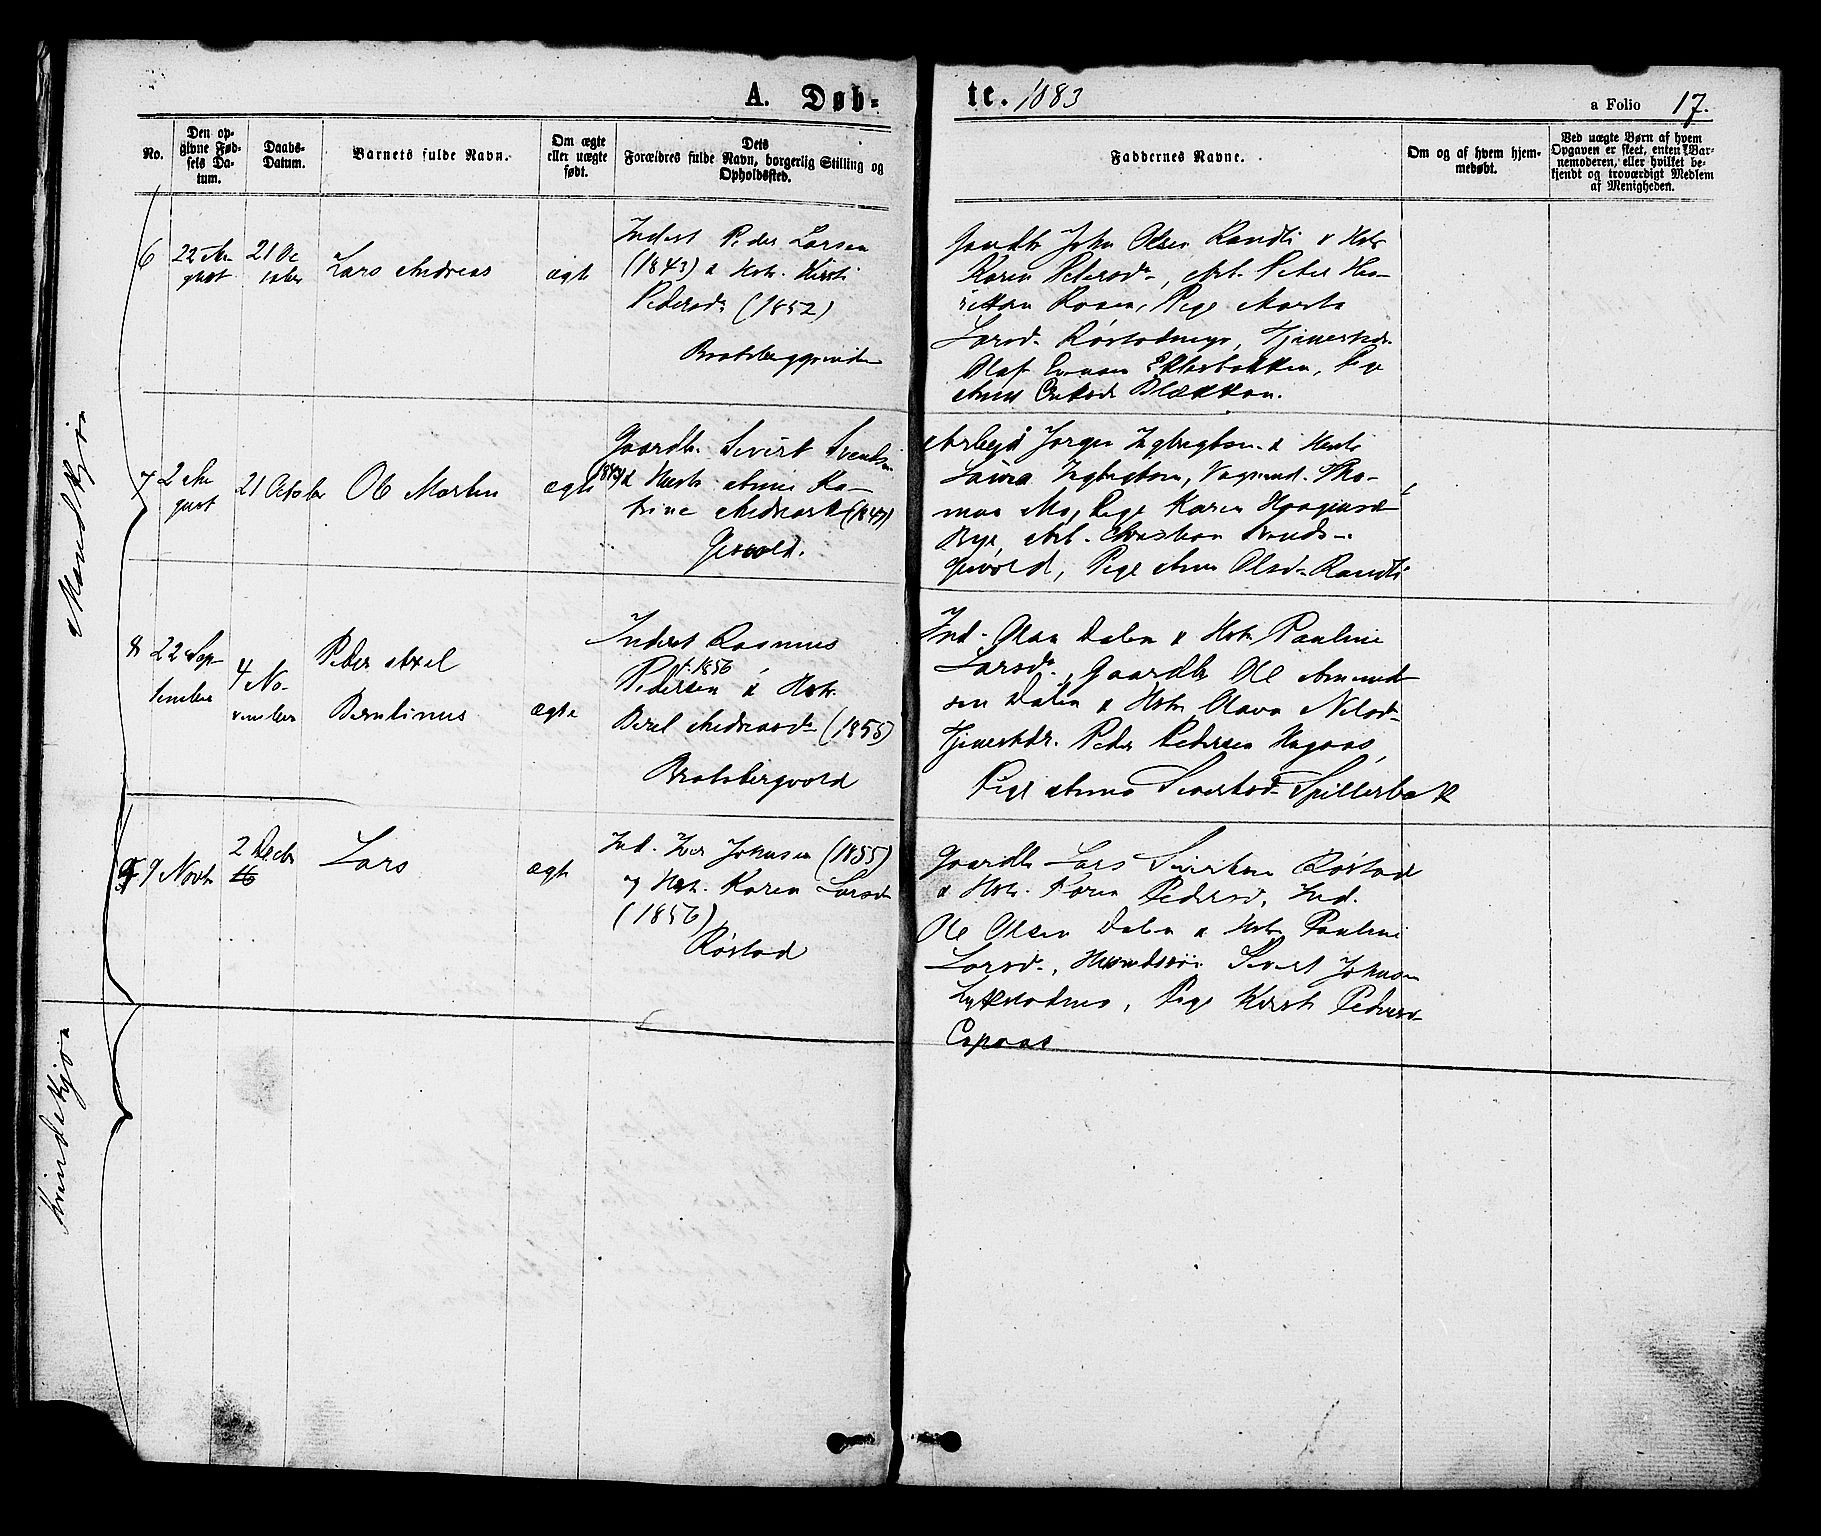 A. Døb=
te. 1883
a Folio 17.
No.
Den op-
givne Fød-
sels Da-
tum.
Daabs-
Datum.
Barnets fulde Navn.
Om ægte
eller uægte
født.
Dets
Forældres fulde Navn, borgerlig Stilling og
Opholdssted.
Faddernes Navne.
Om og af hvem hjem-
medøbt.
Ved uægte Børn af hvem
Opgaven er skeet, enten Bar-
nemoderen, eller hvilket be-
kjendt og troværdigt Medlem
af Menigheden.
Mandkjøn
6
22 Au
gust
21 Oc
tober
Lars Andreas
ægte
Inderst Peder Larsen
(1843) & Hstr. Kirsti
Pedersdr (1852)
Bratsberg
Gaardbr John Olsen Randli & Hstr
Karen Petersdr, Arb. Peter
Rosen, Pige Marta
Larsd. Røstad, Tjenestedr.
Olaf Eklesbakken, Pige
Anne Blækkan.
7
2 Au
gust
21 October
Ole Martin
ægte
Gaardbr. Sivert Svends.
1843 & Hustr. Anne Ka-
trine Andreasdr (1843)
Gisvold.
Arbeid Jørgen Ingbrigtsen & Hustr
Laura Ingbrigtsen, Vognmd. Tho-
mas Mo, Pige Karen Haagensd
Bye, Arb. Christian Svends.
Gisvold, Pige Anne Olsdr Randli
8
22 Sep-
tember
4 No-
vember
Peder Axel
Berntinus
ægte
Inderst Rasmus
f. 1856
Pedersen & Hstr.
Beret Andreasdr (1856)
Bratsbergvold
Ind. Olan Dalen & Hstr Pauline
Larsdr, Gaardbr Ole Amund-
sen Dalen & Hstr Olava Nilsd.
Tjenestdr. Peder Pedersen Hagaas,
Pige Anne Sivertsdr Spillerbæk
9
9 Novbr
2 Decbr
Lars
ægte
Ind. Iver Johnsen (1855)
og Hstr. Karen Larsdr
(1856)
Røstad
Gaardbr Lars Sivertsen Røstad
& Hstr. Karen Pedersd, Ind.
Ole Olsen Dalen & Hstr Pauline
Larsdr, Sivert Johnsen
Pige Kirsti Pedersd
Espaas
Kvindekjøn